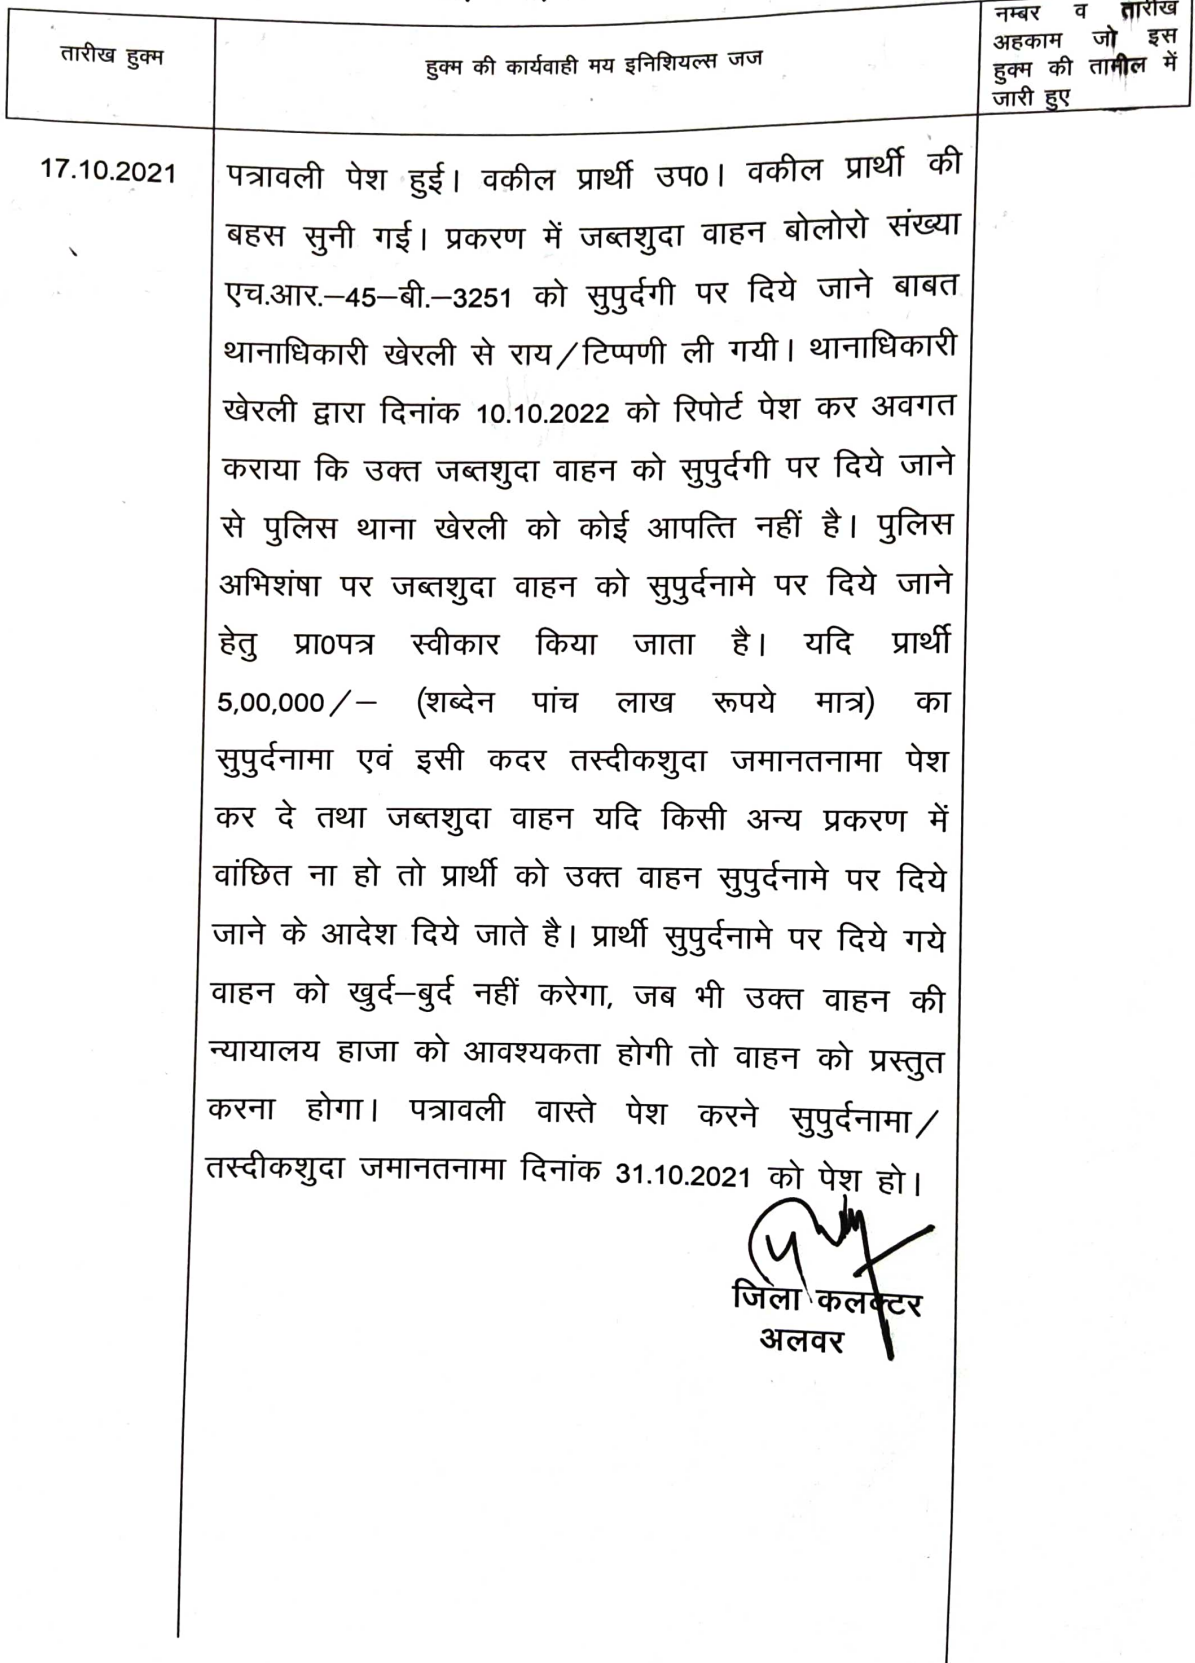 तारीख हुक्म
हुक्म की कार्यवाही मय इनिशियल्स जज
नम्बर व तारीख
अहकाम जो इस
हुक्म की तामील में
जारी हुए
17.10.2021
पत्रावली पेश हुई। वकील प्रार्थी उप0। वकील प्रार्थी की
बहस सुनी गई। प्रकरण में जब्तशुदा वाहन बोलोरो संख्या
एच.आर.–45–बी.–3251 को सुपुर्दगी पर दिये जाने बाबत
थानाधिकारी खेरली से राय/टिप्पणी ली गयी। थानाधिकारी
खेरली द्वारा दिनांक 10.10.2022 को रिपोर्ट पेश कर अवगत
कराया कि उक्त जब्तशुदा वाहन को सुपुर्दगी पर दिये जाने
से पुलिस थाना खेरली को कोई आपत्ति नहीं है। पुलिस
अभिशंषा पर जब्तशुदा वाहन को सुपुर्दनामे पर दिये जाने
हेतु प्रा0पत्र स्वीकार किया जाता है। यदि प्रार्थी
5,00,000/– (शब्देन पांच लाख रूपये मात्र) का
सुपुर्दनामा एवं इसी कदर तस्दीकशुदा जमानतनामा पेश
कर दे तथा जब्तशुदा वाहन यदि किसी अन्य प्रकरण में
वांछित ना हो तो प्रार्थी को उक्त वाहन सुपुर्दनामे पर दिये
जाने के आदेश दिये जाते है। प्रार्थी सुपुर्दनामे पर दिये गये
वाहन को खुर्द–बुर्द नहीं करेगा, जब भी उक्त वाहन की
न्यायालय हाजा को आवश्यकता होगी तो वाहन को प्रस्तुत
करना होगा। पत्रावली वास्ते पेश करने सुपुर्दनामा/
तस्दीकशुदा जमानतनामा दिनांक 31.10.2021 को पेश हो।
जिला कलक्टर
अलवर